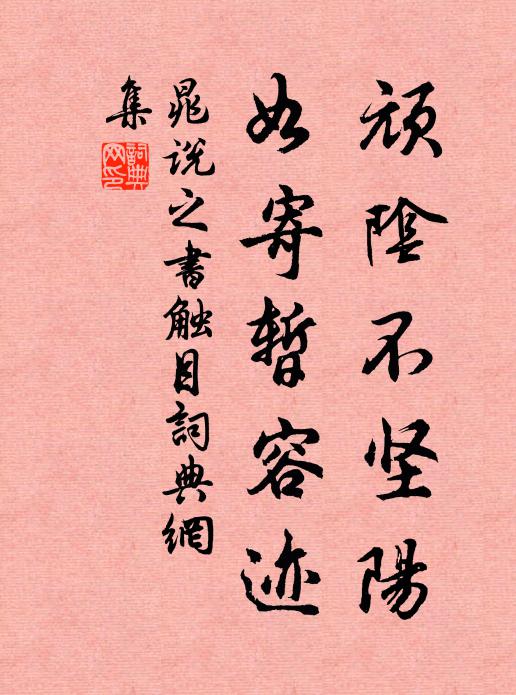 顽陰不坚陽
如寄暫容迹
晁说之書触目詞典網
集
詞典
网印